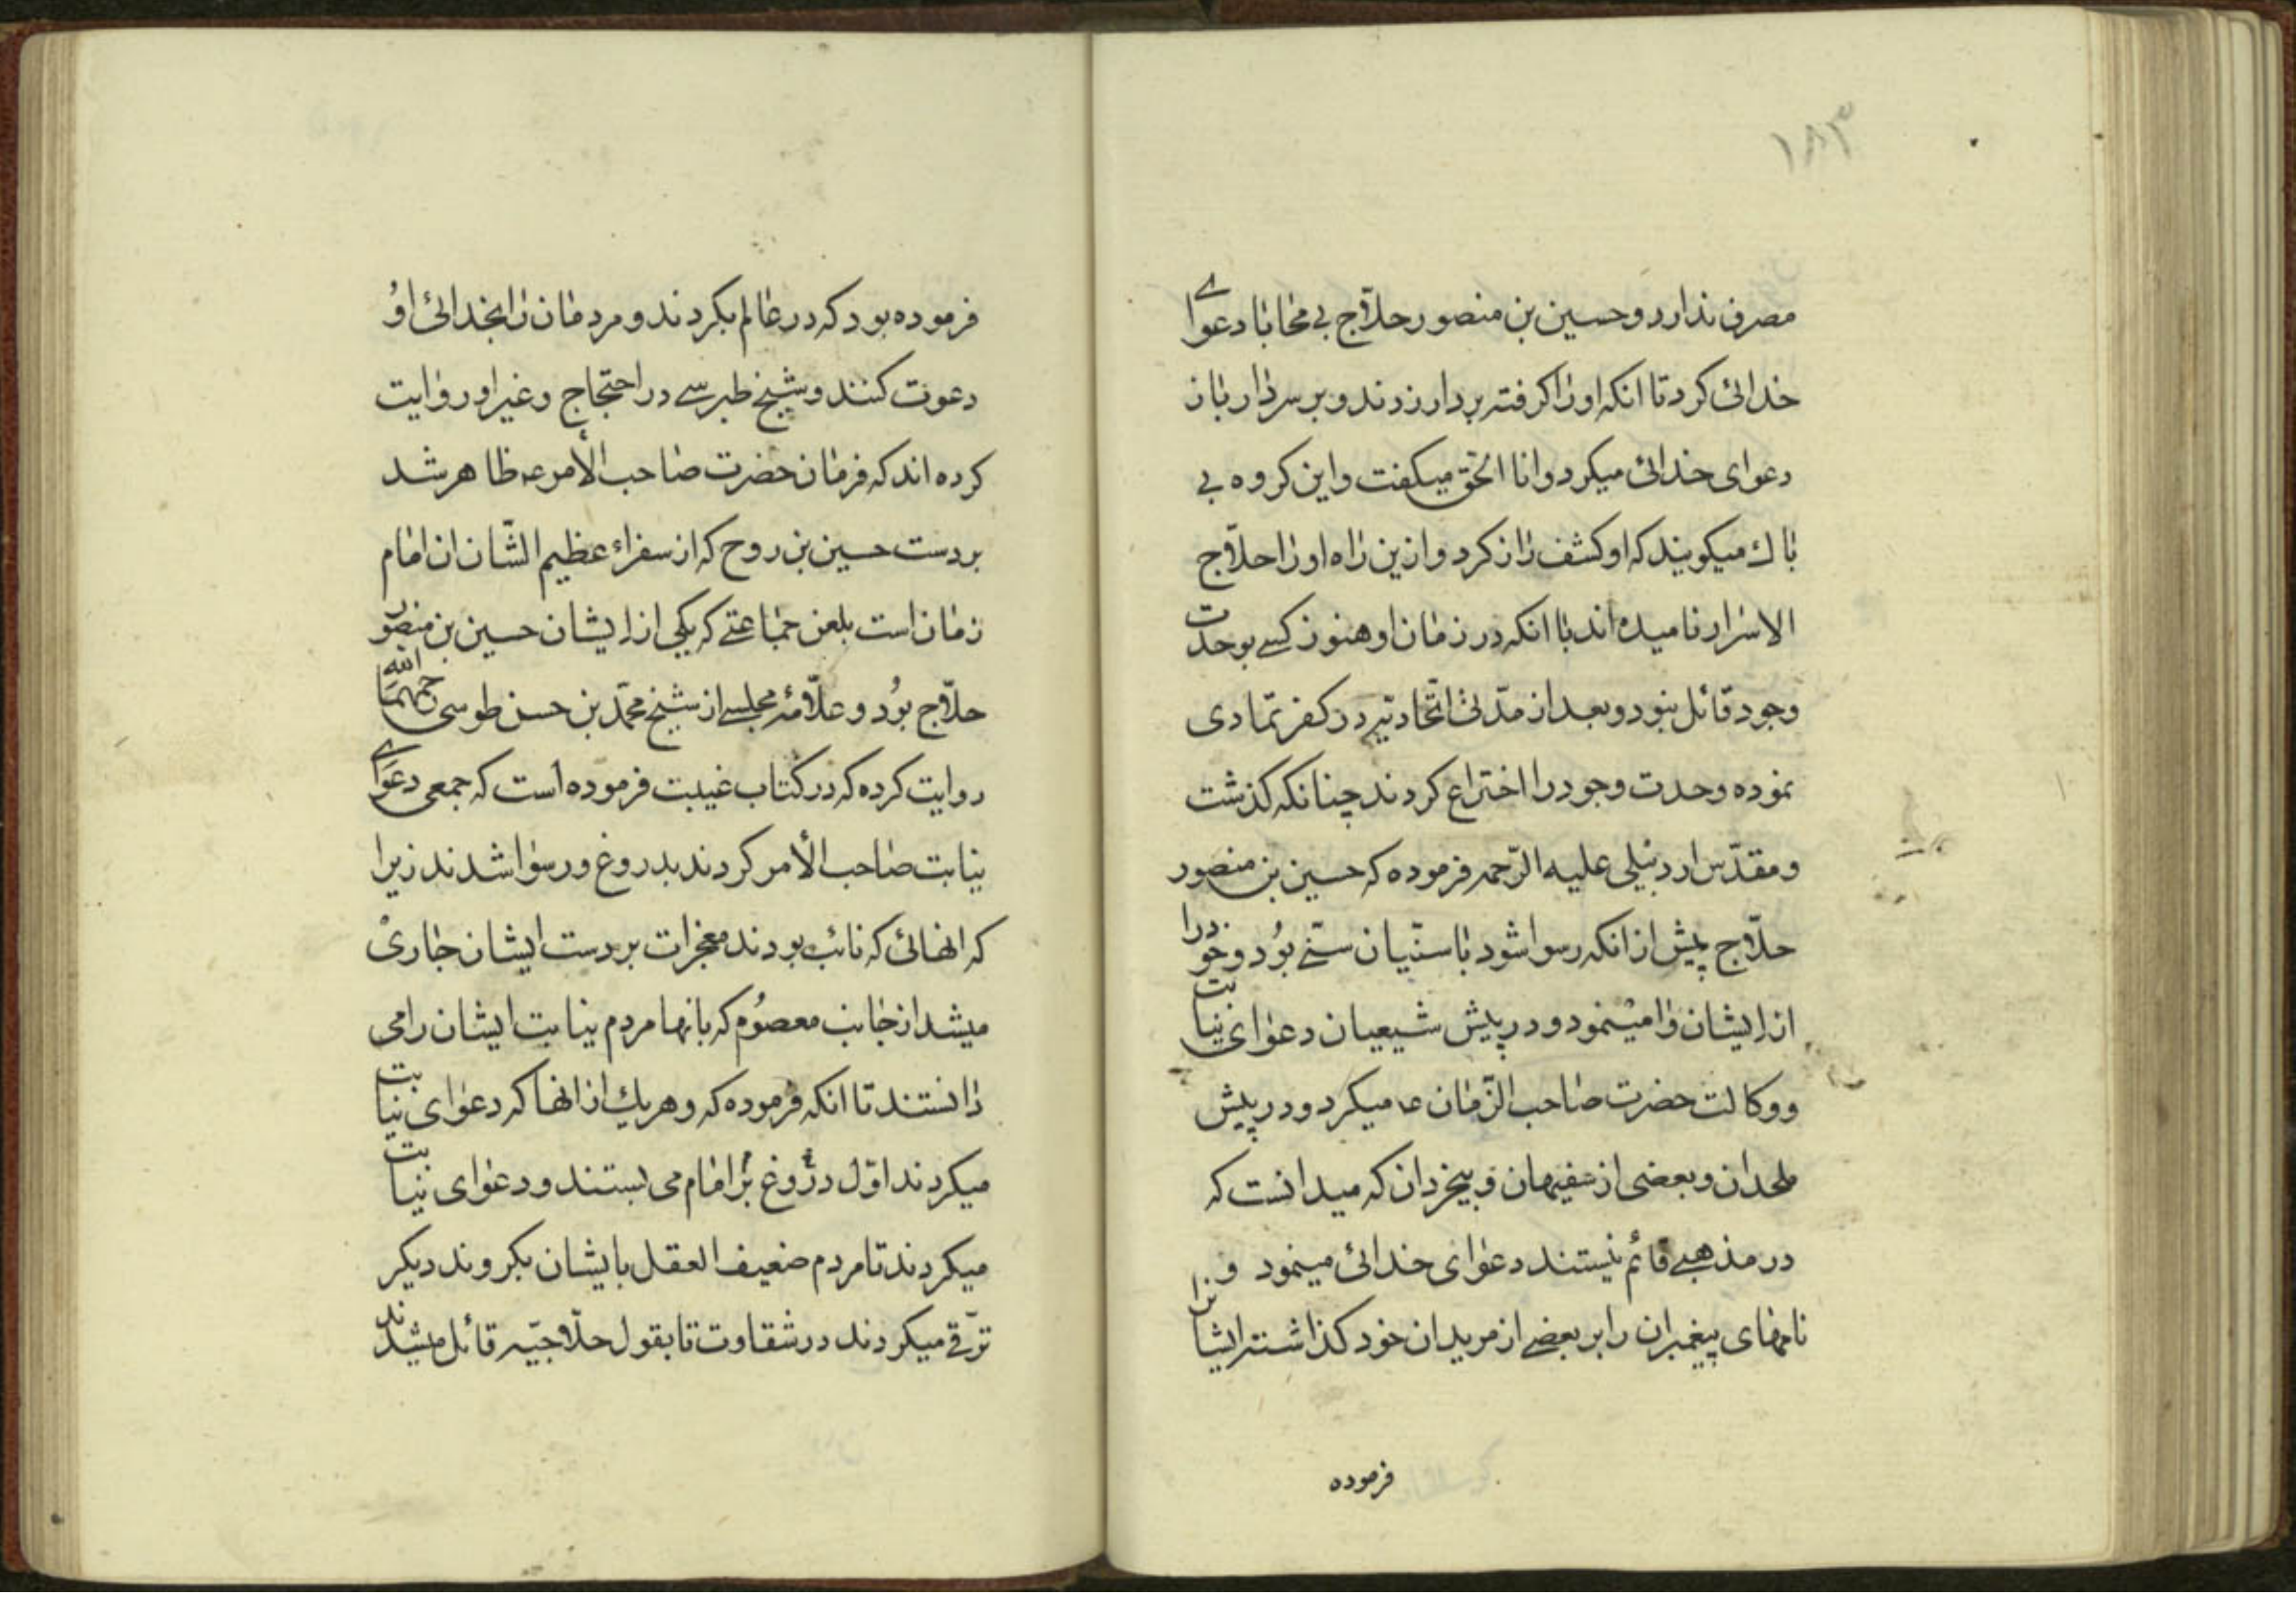 ۱۸۳
مصرف ندارد و حسین بن منصور حلاّج بی محابا دعوای
خدائی کرد تا انکه او را کرفته بردار زدند و بر سر دار باز
دعوای خدائی میکرد و انا الحق میکفت و این کروه بی
باك میکویند که او کشف راز کرد و ازین راه او را حلاّج
الاسرار نامیده اند با انکه در زمان او هنوز کسے بوحدت
وجود قائل نبود و بعد از مدّتی اتّحادیّه در کفر تمادی
نموده وحدت وجود را اختراع کردند چنانکه کذشت
و مقدّس اردبیلی علیه الرّحمه فرموده که حسین بن منصور
حلاّج پیش از انکه رسوا شود با سنّیان سنّے بُود و خود را
از ایشان وا مینمود و در پیش شیعیان دعوای نیابت
و وکالت حضرت صاحب الزّمان ع میکرد و در پیش
ملحدان و بعضی از سفیهان و بیخردان که میدانست که
در مذهبے قائم نیستند دعوای خدائی مینمود و
نامهای پیغمبران را بر بعضے از مریدان خود کذاشته ایشانرا
فرموده
فرموده بود که در عالم بکردند و مردمان را بخدائی اوُ
دعوت کنند و شیخ طبرسے در احتجاج و غیر او روایت
کرده اند که فرمان حضرت صاحب الأمر ع ظاهر شد
بر دست حسین بن روح که از سفراء عظیم الشّان ان امام
زمان است بلعن جماعتے که یکی از ایشان حسین بن منصور
حلاّج بُود و علاّمهٔ مجلسے از شیخ محمّد بن حسن طوسی رحمهما الله
روایت کرده که در کتاب غیبت فرموده است که جمعی دعوای
نیابت صاحب الأمر کردند بدروغ و رسوا شدند زیرا
که انهائی که نائب بودند معجزات بر دست ایشان جاری
میشد از جانب معصوُم که بانها مردم نیابت ایشان را می
دانستند تا انکه فرموده که و هر یك از انها که دعوای نیابت
میکردند اوّل دروغ بر امام می بستند و دعوای نیابت
میکردند تا مردم ضعیف العقل بایشان بکروند دیکر
ترقّے میکردند در شقاوت تا بقول حلاّجیّه قائل میشدند